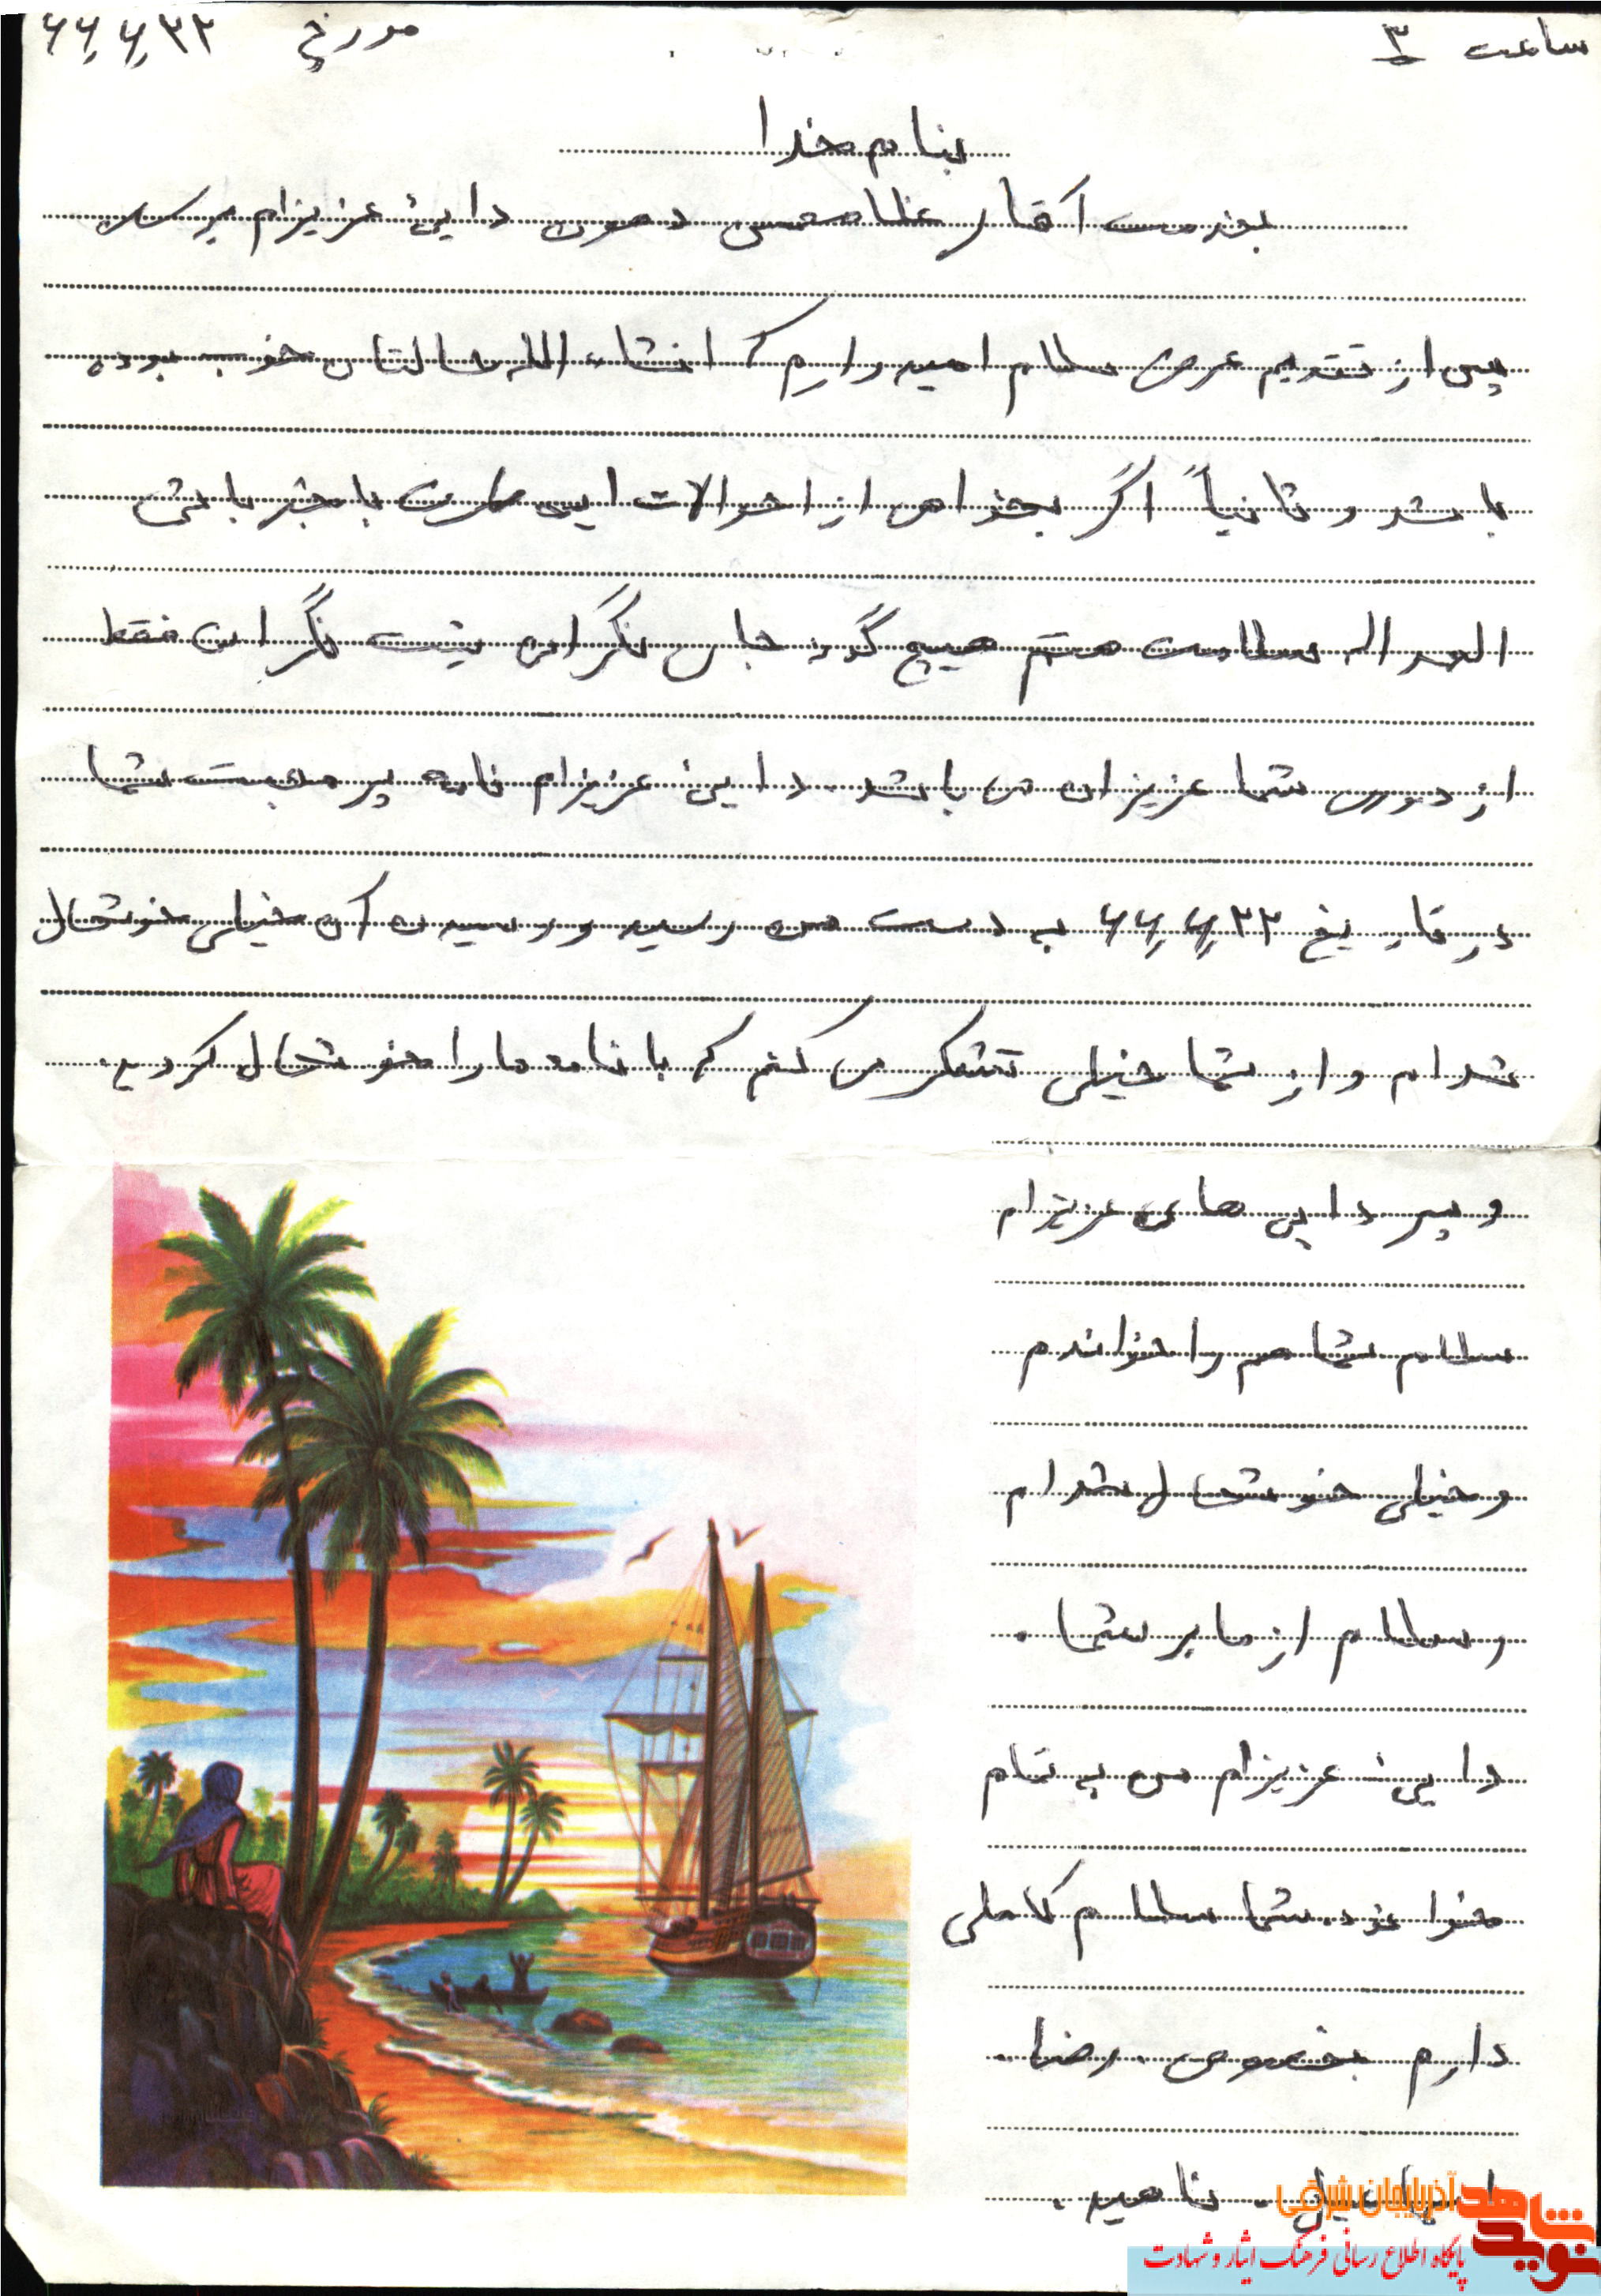 ساعت ۳ مورخ ۶۶٫۶٫۲۲
بنام خدا
بخدمت آقای دایی عزیزام برسد
پس از تقدیم عرض سلام امیدوارم که انشاء الله حالتان خوب بوده
باشد و ثانیاً اگر بخواهی از احوالات این جانب با خبر باشی
الحمد الله سلامت هستم هیچ گونه جای نگرانی نیست نگرانی فقط
از دوری شما عزیزان می باشد. دایی عزیزام نامه پر محبت شما
در تاریخ ۶۶٫۶٫۲۲ به دست من رسید و رسیدن آن خیلی خوشحال
شدام و از شما خیلی تشکر می کنم که با نامه ما را خوشحال کردید.
و پسر دایی های عزیزام
سلام شما هم را خواندم
و خیلی خوشحال شدام
و سلام از ما بر شما.
دایی عزیزام من به تمام
خوانود شما سلام کاملی
دارم بخصوص رضا.
اسماعیل. ناهید.
نوید شاهد آذربایجان شرقی
پایگاه اطلاع رسانی فرهنگ ایثار و شهادت